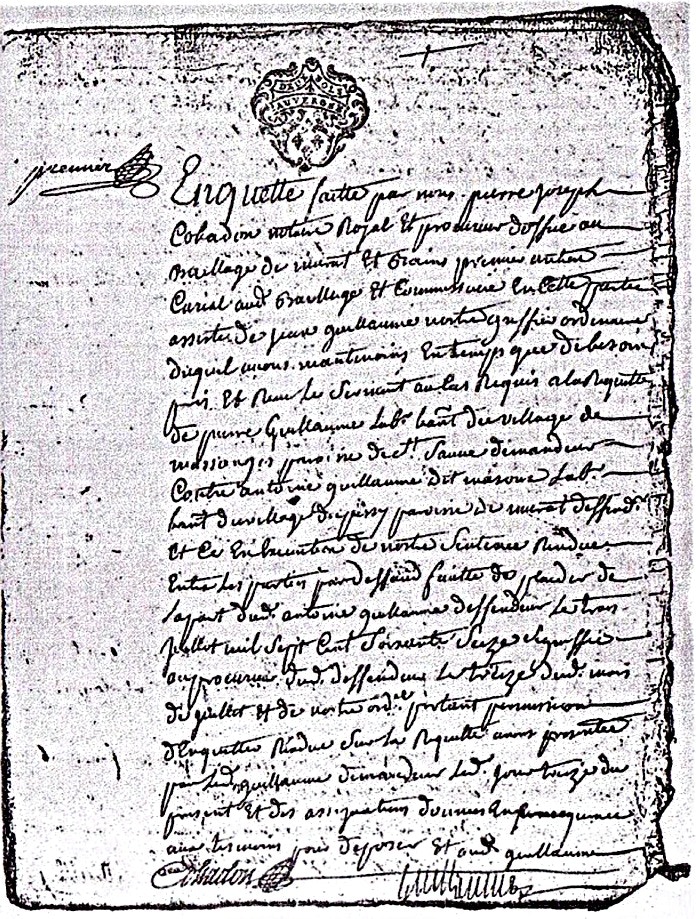 DEUX SOLS
AUVERGNE
premier
Enquette faitte par nous pierre Joseph
Cobadon notaire Royal Et procureur doffice au
Baillage de murat Et Grains premier
Curial aud. Baillage Et Commissaire En Cette partie
assisté de jean guillaume notre greffier ordinaire
duquel avons maintenoins En temps que de besoin
pris Et Reçu Le Serment au Cas Requis a la Requette
de pierre Guillaume Labr. hant du village de
massonges paroisse de St. Sauve demandeur
Contre antoine guillaume dit masone Labr.
hant du village paroisse de murat deffendr.
Et Ce En Execution de notre Sentence Rendue
Entre Les parties par deffaud faitte de plaider de
La part dud. antoine guillaume deffendeur Le trois
juillet mil Sept Cent Soixante Seize Signiffié
au procureur dud. deffendeur Le treize dud. mois
de juillet et de notre orde. portant permission
d'Enquetter Rendue Sur La Requette a nous presentée
par Led. guillaume demandeur Led. jour treize du
present Et des assignations données En Consequence
aux temoins pour deposer Et aud. guillaume
Cobadon
guillaume